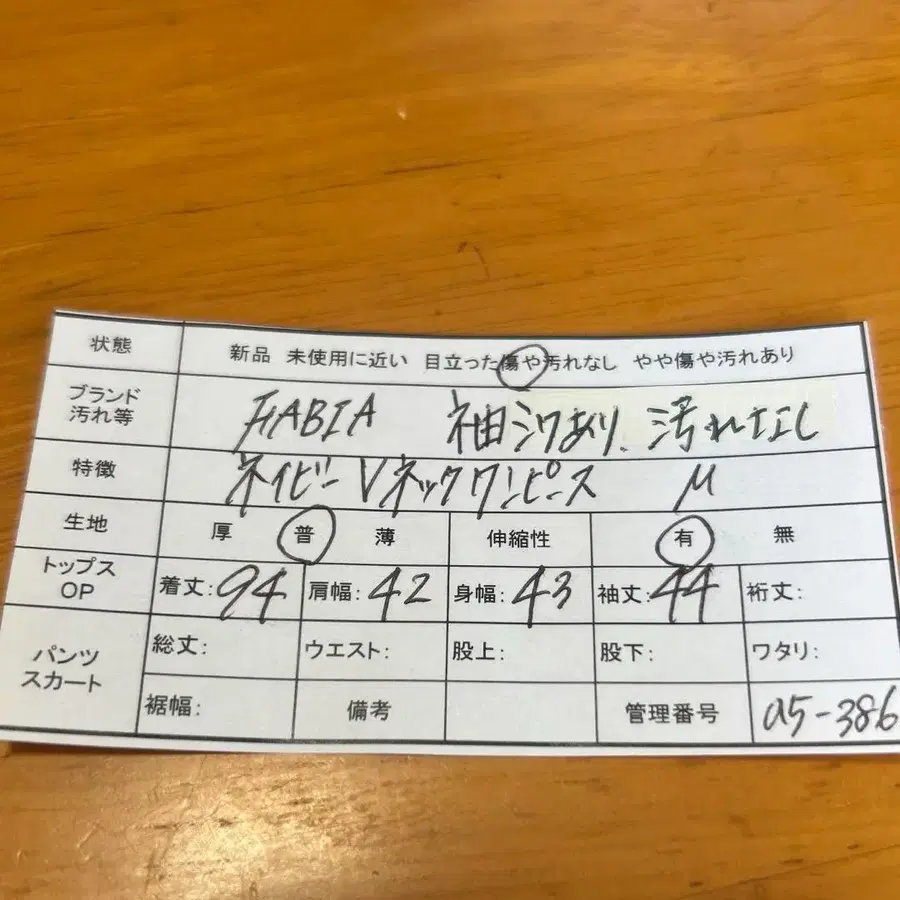 状態 新品 未使用に近い 目立った傷や汚れなし やや傷や汚れあり
ブランド 汚れ等 FABIA 袖シワあり、汚れなし
特徴 ネイビー Vネックワンピース M
生地 厚 普 薄 伸縮性 有 無
トップス OP 着丈:94 肩幅:42 身幅:43 袖丈:44 裄丈:
パンツ スカート 総丈: ウエスト: 股上: 股下: ワタリ:
裾幅: 備考 管理番号 a5-386